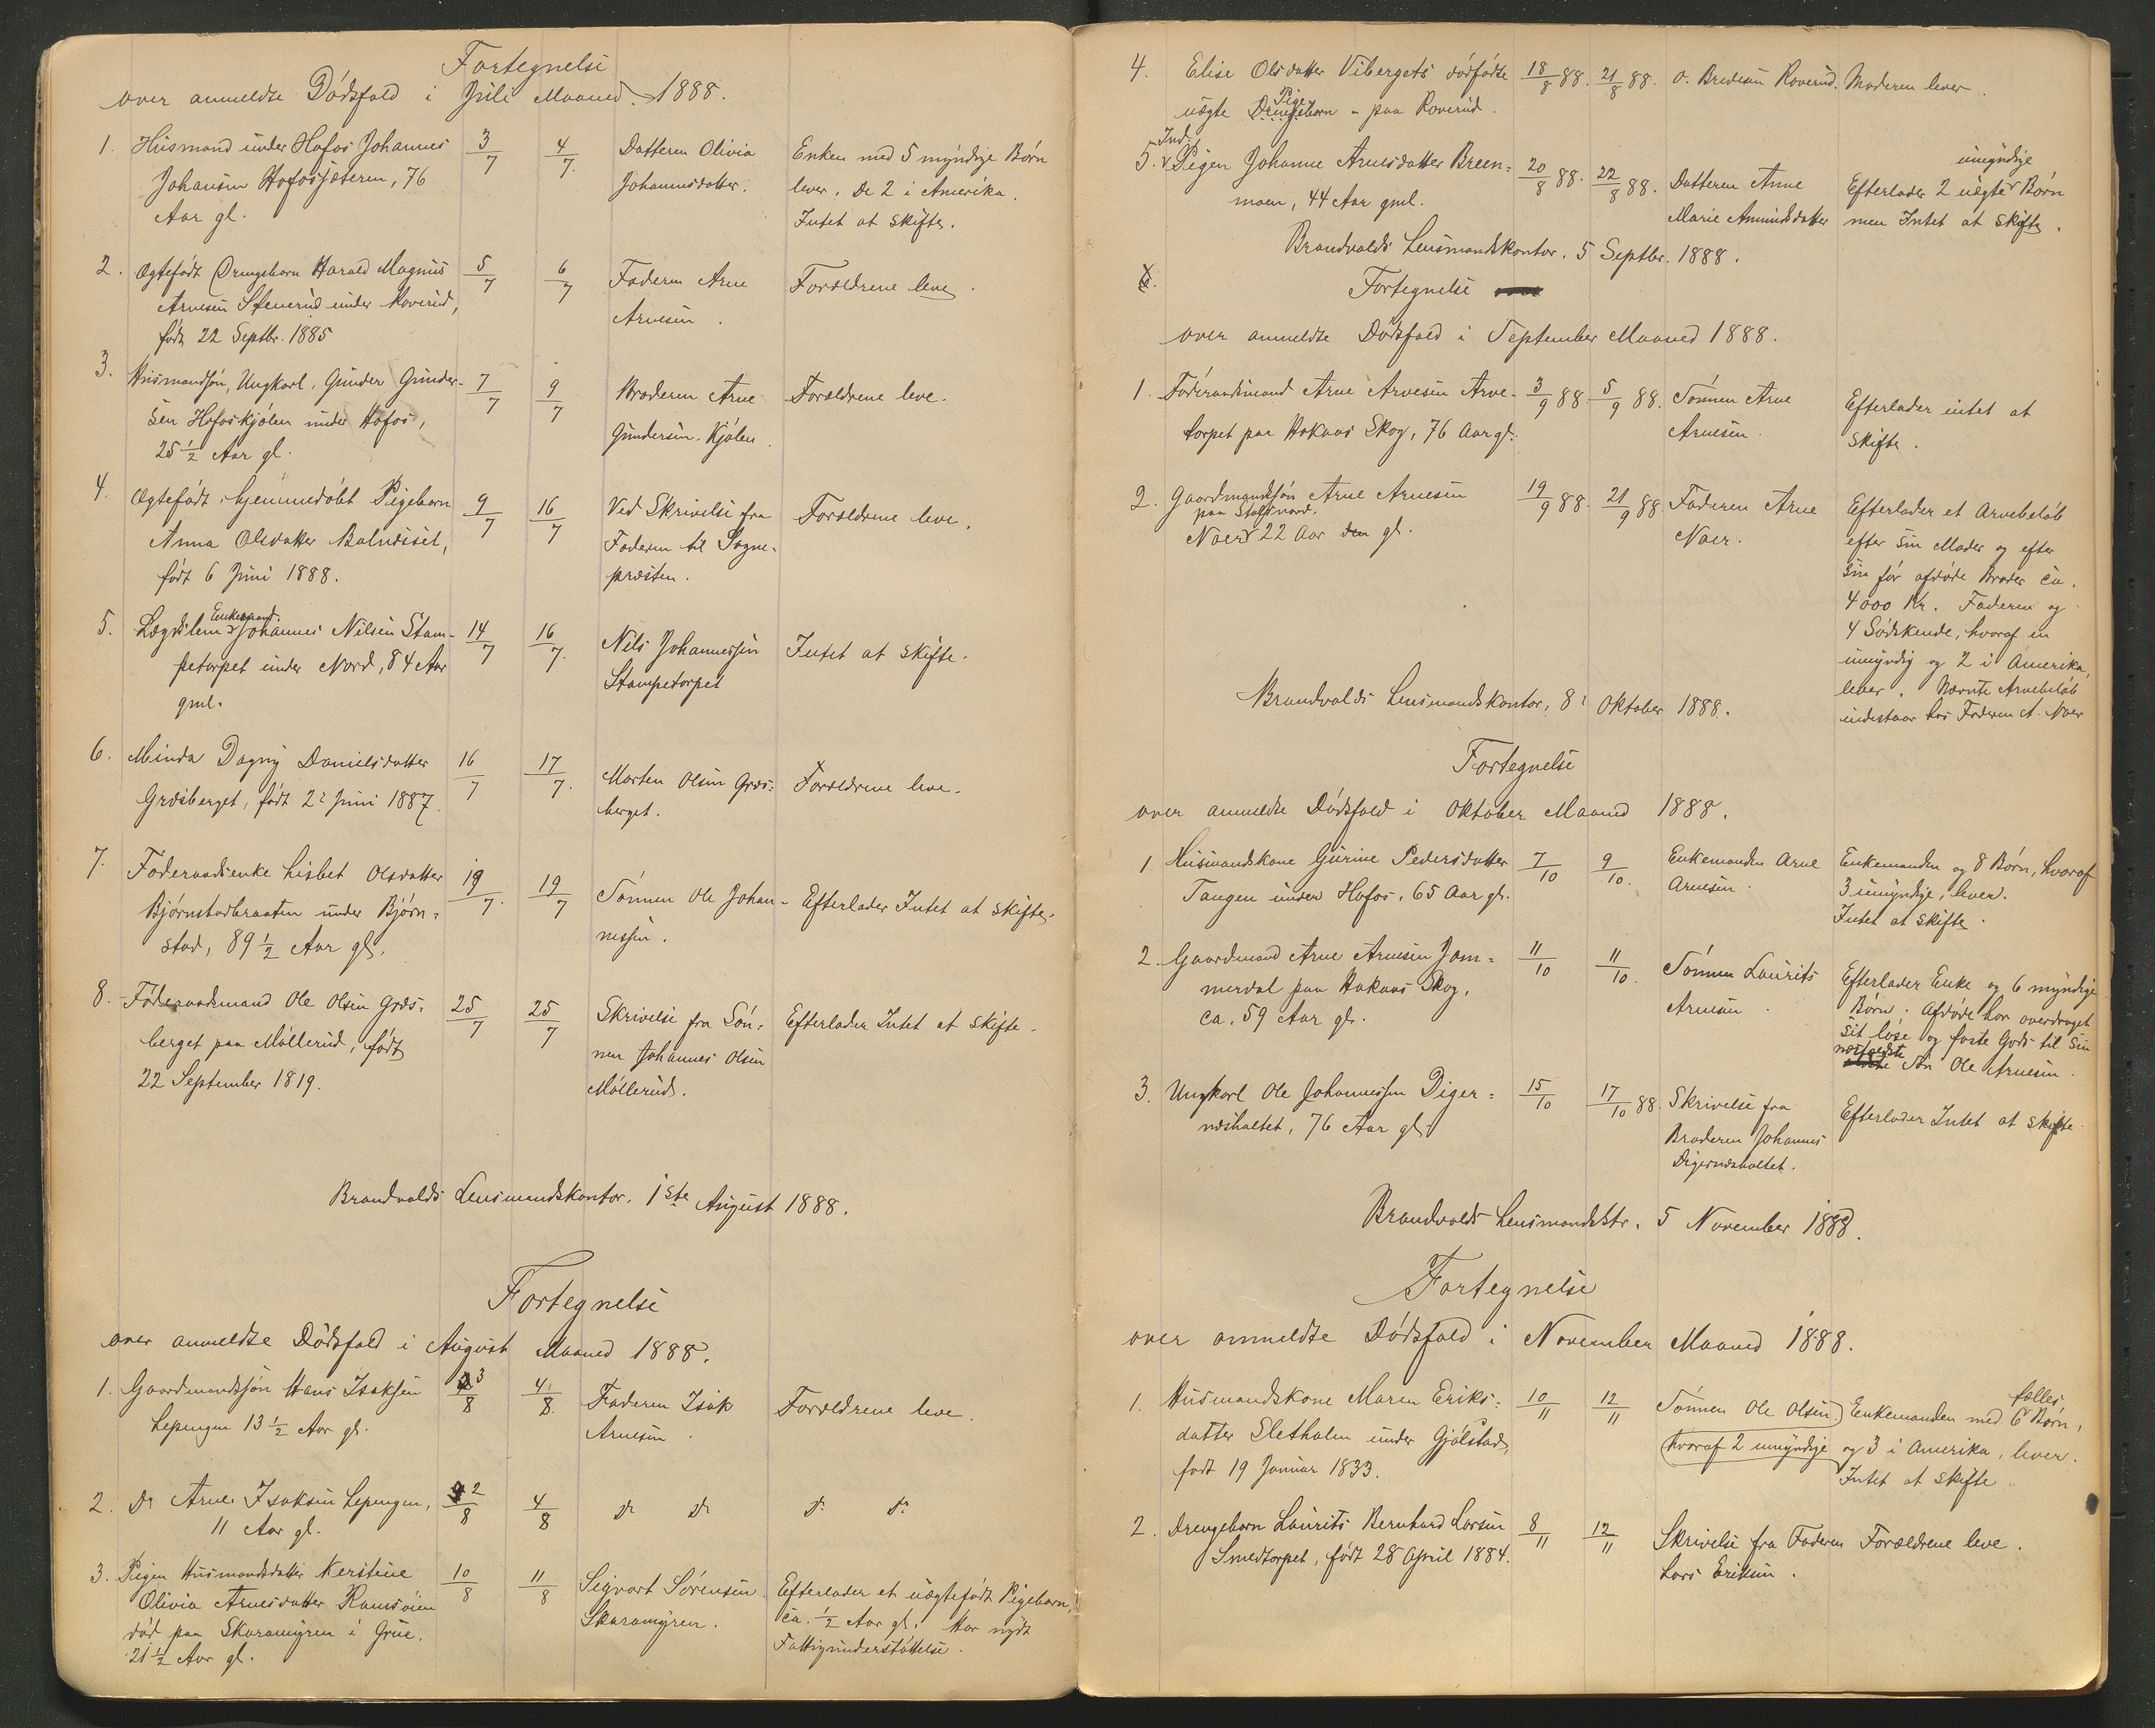 Fortegnelse
over anmeldte Dödsfald i Juli Maaned 1888.
1. Husmand under Hofos Johannes 3/7 4/7. Datteren Olivia Enken med 5 myndige Börn
Johansen Hofossjøteren, 76 Johannesdatter. lever. De 2 i Amerika.
Aar gl. Intet at skifte.
2. Ægtefödt Drengebarn Harald Magnus 5/7 6/7 Faderen Arne Forældrene leve.
Arnesen Stenerud under Roverud, Arnesen.
födt 22 Septbr. 1885
3. Husmandssön, Ungkarl, Gunder Gunder- 7/7 9/7 Broderen Arne Forældrene leve.
sen Hofoskjölen under Hofos, Gundersen Kjölen.
25 1/2 Aar gl.
4. Ægtefödt, hjemmedöbt Pigebarn 9/7 16/7 Ved Skrivelse fra Forældrene leve.
Anna Olsdatter Faderen til Sogne-
födt 6 Juni 1888. præsten.
5. Lægdslem Enkemand Johannes Nilsen Stam- 14/7 16/7. Nils Johannessen Intet at skifte.
petorpet under Nord, 84 Aar Stampetorpet
gml.
6. Minda Dagny Danielsdatter 16/7 17/7. Morten Olsen Græs- Forældrene leve.
Græsberget, födt 2 Juni 1887. berget.
7. Föderaadsenke Lisbet Olsdatter 19/7. 19/7 Sönnen Ole Johan- Efterlader Intet at skifte.
Bjørnstadbraaten under Bjørn- nessen.
stad, 89 1/2 Aar gl.
8. Föderaadsmand Ole Olsen Græs- 25/7 25/7 Skrivelse fra Sön- Efterlader Intet at skifte.
berget paa Möllerud, födt nen Johannes Olsen
22 September 1819. Möllerud.
Brandvolds Lensmandskontor. 1ste August 1888.
Fortegnelse
over anmeldte Dödsfald i August Maaned 1888.
1. Gaardmandssön Hans Isaksen 3/8 4/8. Faderen Isak Forældrene leve.
Lepengen 13 1/2 Aar gl. Arnesen.
2. Do Arne Isaksen Lepengen, 2/8 4/8 Do Do Do Do
11 Aar gl.
3. Pigen Husmandsdatter Kerstine 10/8 11/8 Sigvart Sörensen Efterlader et uægtefödt Pigebarn,
Olivia Arnesdatter Ramsöien Skaramyren. ca. 1/2 Aar gl. Har nydt
död paa Skaramyren i Grue. Fattigunderstöttelse.
21 1/2 Aar gl.
4. Elise Olsdatter Vibergets dödfödte 18/8 88. 21/8 88. O. Bredesen Roverud. Moderen lever.
uægte Drengebarn Pige- paa Roverud.
5. Ind. Pigen Johanne Arnesdatter Breen- 20/8 88. 22/8 88. Datteren Anne Efterlader 2 uægte umyndige Börn
moen, 44 Aar gml. Marie Amundsdatter men Intet at skifte.
Brandvolds Lensmandskontor, 5 Septbr. 1888.
Fortegnelse
over anmeldte Dødsfald i September Maaned 1888.
1. Föderaadsmand Arne Arnesen Arne- 3/9 88. 5/9 88. Sönnen Arne Efterlader intet at
torpet paa Hokaas Skog, 76 Aar gl. Arnesen. skifte.
2. Gaardmandssön Arne Arnesen 19/9 88. 21/9 88. Faderen Arne Efterlader et Arvebelöb
Noer 22 Aar gl. Noer. efter sin Moder og efter
sin før afdöde Broder ca.
4000 Kr. Faderen og
4 Södskende, hvoraf en
umyndig og 2 i Amerika,
lever. Nævnte Arvebelöb
indestaar hos Faderen A. Noer
Brandvolds Lensmandskontor, 8 Oktober 1888.
Fortegnelse
over anmeldte Dödsfald i Oktober Maaned 1888.
1. Husmandskone Gurine Pedersdatter 7/10 9/10. Enkemanden Arne Enkemanden og 8 Børn, hvoraf
Tangen under Hofos, 65 Aar gl. Arnesen. 3 umyndige, lever.
Intet at skifte.
2. Gaardmand Arne Arnesen Jam- 11/10 11/10. Sönnen Laurits Efterlader Enke og 6 myndige
merdal paa Hokaas Skog, Arnesen. Börn. Afdöde har overdraget
ca. 59 Aar gl. sit løse og faste Gods til sin
næstældste Sön Ole Arnesen.
3. Ungkarl Ole Johannessen Diger- 15/10 17/10 88. Skrivelse fra Efterlader Intet at skifte
næsholtet, 76 Aar gl. Broderen Johannes
Digernæsholtet.
Brandvolds Lensmandsktr. 5 November 1888.
Fortegnelse
over anmeldte Dödsfald i November Maaned 1888.
1. Husmandskone Maren Eriks- 10/11 12/11 Sönnen Ole Olsen. Enkemanden med 6 fælles Børn,
datter Sletholen under Gjölstad, hvoraf 2 umyndige og 3 i Amerika, lever.
födt 19 Januar 1833. Intet at skifte
2. Drengebarn Laurits Bernhard Larsen 8/11 12/11 Skrivelse fra Faderen Forældrene leve.
Smedtorpet, födt 28 April 1884. Lars Eriksen.